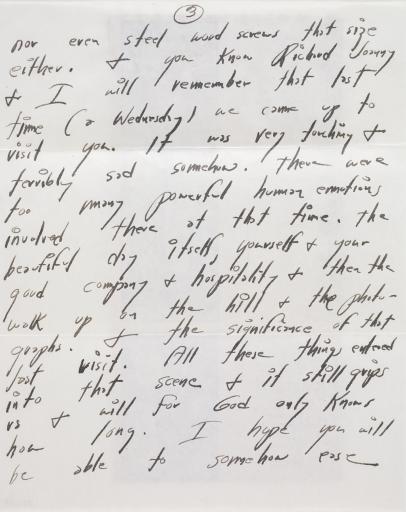 3
nor even steel wood screws that size
either. & you know Richard Jonny
& I will remember that last
time (a Wednesday) we came up to
visit you. It was very touching &
terribly sad somehow. there were
too many powerful human emotions
involved there at that time. the
beautiful day itself, yourself & your
good company & hospitality & then the
walk up on the hill & the photo-
graphs. & the significance of that
last visit. All these things entered
into that scene & it still grips
us & will for God only knows
how long. I hope you will
be able to somehow ease